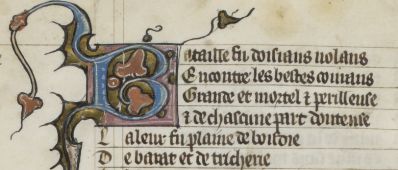 Bataille fu doisiaus uolans
Encontre les bestes courans
Grande et mortel ⁊ perilleuse
⁊ de chascune part douteuse
La leur fu plaine de boisdie
De barat et de tricherie